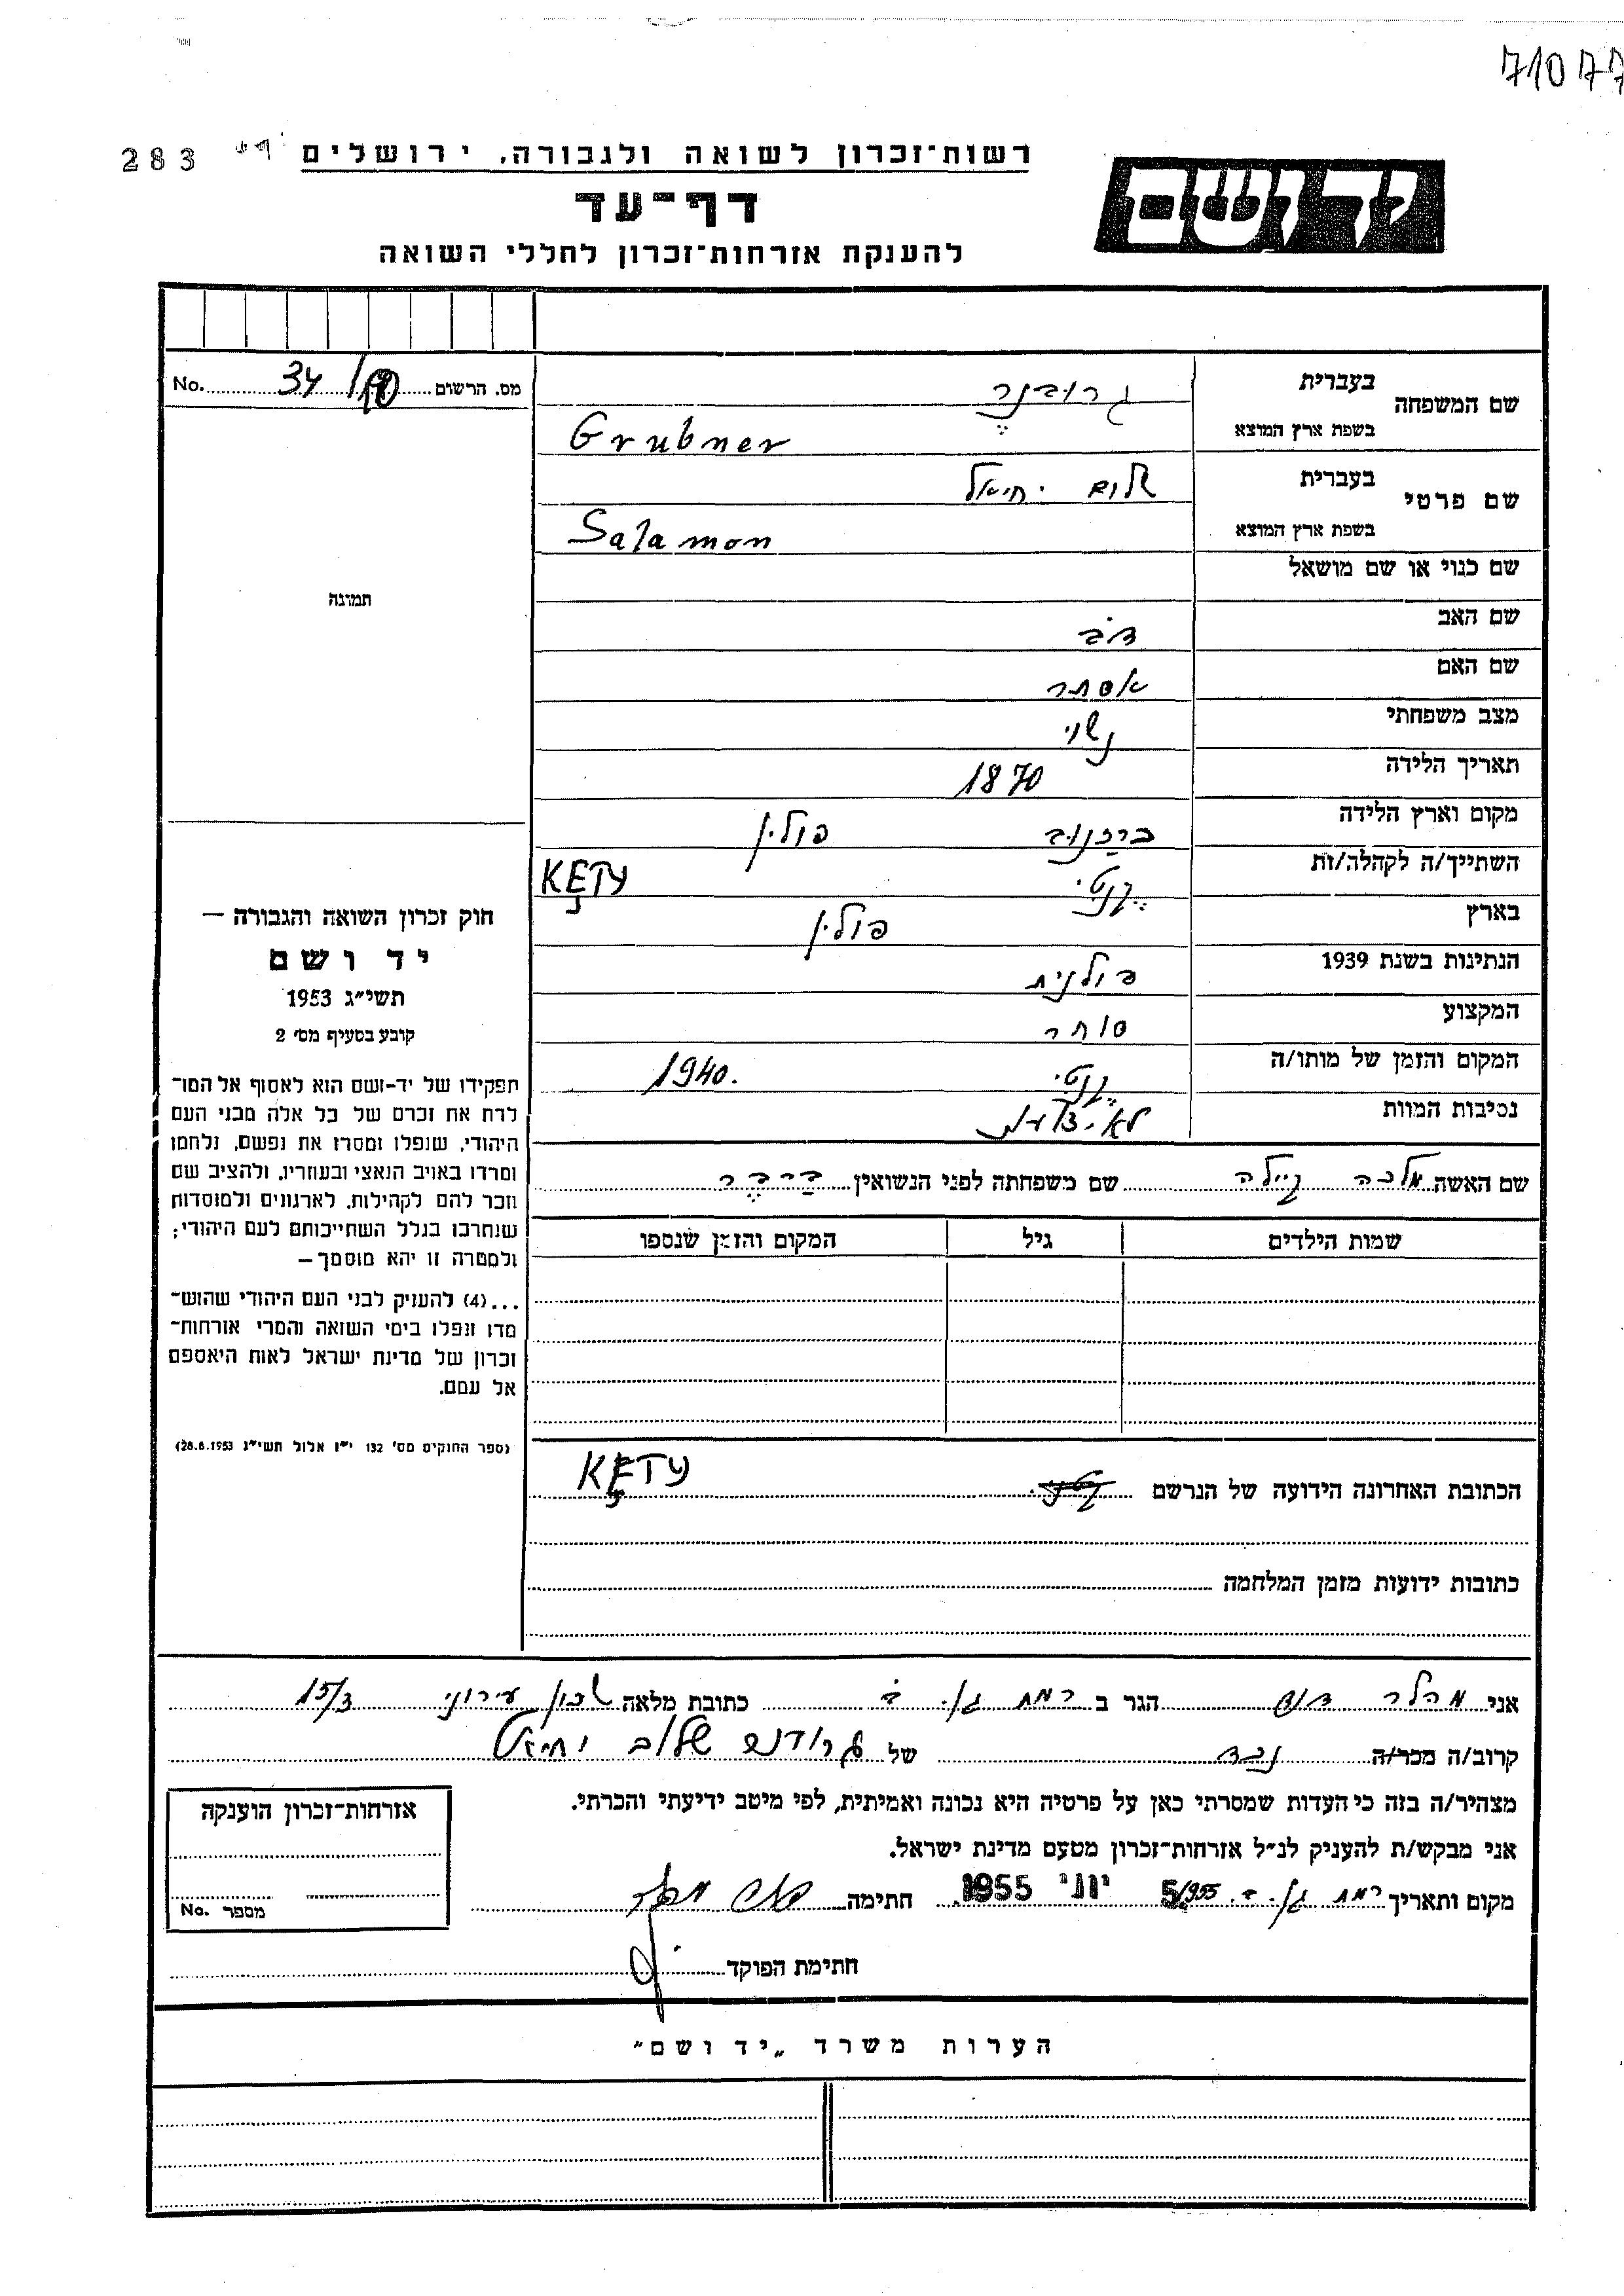 71077
רשות־זכרון לשואה ולגבורה, ירושלים
283
יד ושם
דף־עד
להענקת אזרחות־זכרון לחללי השואה
מס. הרשום 34 / No.
שם המשפחה בעברית גרובנר
בשפת ארץ המוצא Grubner
שם פרטי בעברית שלום יחיאל
בשפת ארץ המוצא Salamon
שם כנוי או שם מושאל
תמונה
שם האב דב
שם האם אסתר
מצב משפחתי נשוי
תאריך הלידה 1870
מקום וארץ הלידה פולין
השתייך/ה לקהלה/ות קנטי KĘTY
בארץ פולין
הנתינות בשנת 1939 פולנית
המקצוע סוחר
המקום והזמן של מותו/ה קנטי 1940.
נסיבות המוות לא ידועות
שם האשה מלכה ביילה שם משפחתה לפני הנשואין
שמות הילדים גיל המקום והזמן שנספו
חוק זכרון השואה והגבורה —
יד ושם
תשי״ג 1953
קובע בסעיף מס׳ 2
תפקידו של יד-ושם הוא לאסוף אל המו־
לדת את זכרם של כל אלה מבני העם
היהודי, שנפלו ומסרו את נפשם, נלחמו
ומרדו באויב הנאצי ובעוזריו, ולהציב שם
וזכר להם לקהילות, לארגונים ולמוסדות
שנחרבו בגלל השתייכותם לעם היהודי;
ולמטרה זו יהא מוסמך —
...(4) להעניק לבני העם היהודי שהוש־
מדו ונפלו בימי השואה והמרי אזרחות־
זכרון של מדינת ישראל לאות היאספם
אל עמם.
(ספר החוקים מס׳ 132 י״ז אלול תשי״ג 28.8.1953)
הכתובת האחרונה הידועה של הנרשם KĘTY
כתובות ידועות מזמן המלחמה
אני מהלר דוד הגר ב רמת גן. ב׳ כתובת מלאה שכון עירוני 15/3
קרוב/ה מכר/ה נכד של שלום יחיאל
מצהיר/ה בזה כי העדות שמסרתי כאן על פרטיה היא נכונה ואמיתית, לפי מיטב ידיעתי והכרתי.
אני מבקש/ת להעניק לנ״ל אזרחות־זכרון מטעם מדינת ישראל.
מקום ותאריך רמת גן. ב. 5 יוני 1955 חתימה
חתימת הפוקד
אזרחות־זכרון הוענקה
מספר No.
הערות משרד „יד ושם״